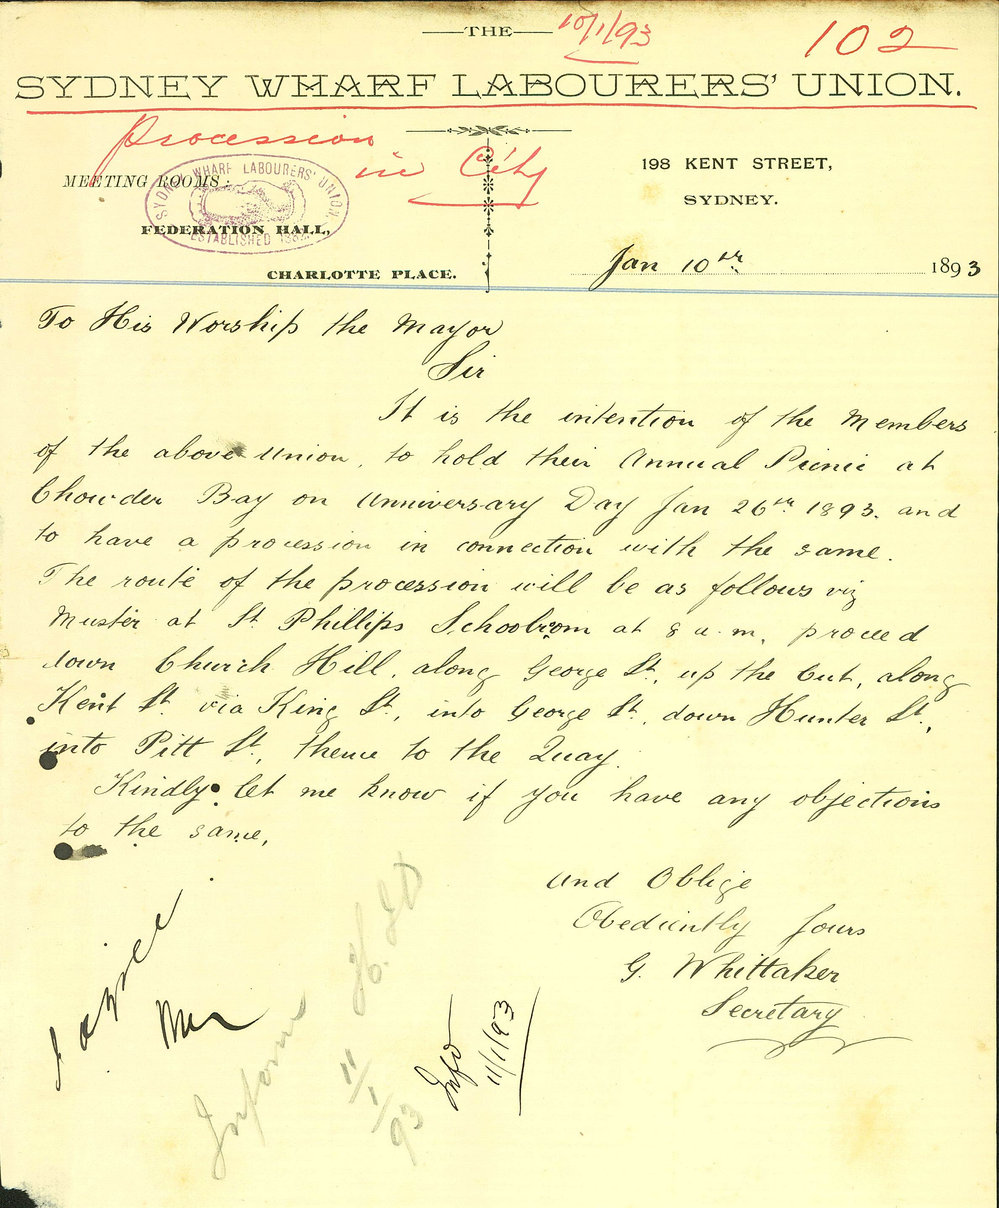 THE
10/1/93
102
SYDNEY WHARF LABOURERS' UNION.
Procession
in City
MEETING ROOMS:
SYDNEY WHARF LABOURERS' UNION
ESTABLISHED
FEDERATION HALL,
CHARLOTTE PLACE.
198 KENT STREET,
SYDNEY.
Jan 10th 1893
To His Worship the Mayor
Sir
It is the intention of the Members
of the above Union, to hold their Annual Picnic at
Chowder Bay on Anniversary Day Jan 26th 1893. and
to have a procession in connection with the same.
The route of the procession will be as follows viz
Muster at St. Phillips Schoolroom at 8 a.m. proceed
down Church Hill, along George St., up the Cut, along
Kent St. via King St., into George St. down Hunter St.,
into Pitt St., thence to the Quay.
Kindly let me know if you have any objections
to the same,
And Oblige
Obediently Yours
G. Whittaker
Secretary
Inform
11/1/93
Info
11/1/93